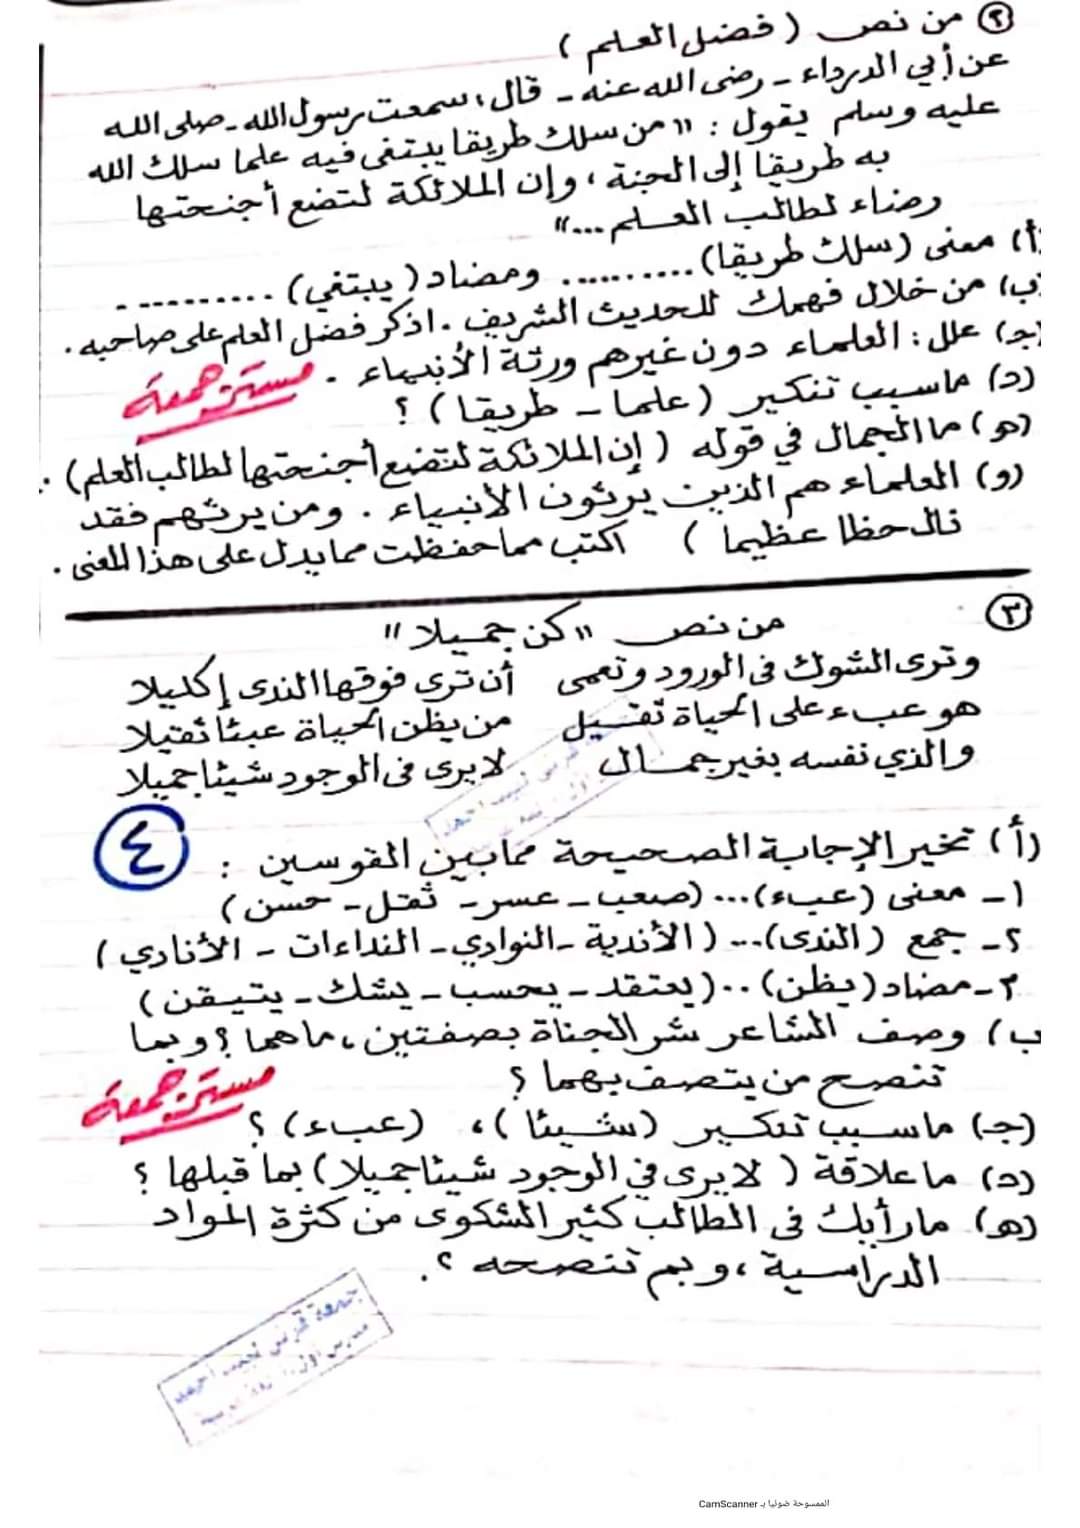 ② من نص ( فضل العلم )
عن أبي الدرداء - رضى الله عنه - قال، سمعت رسول الله - صلى الله
عليه وسلم يقول : « من سلك طريقا يبتغى فيه علما سلك الله
به طريقا إلى الجنة ، وإن الملائكة لتضع أجنحتها
رضاء لطالب العلم ...»
(أ) معنى (سلك طريقا) .......... ومضاد ( يبتغي ) ..........
(ب) من خلال فهمك للحديث الشريف . اذكر فضل العلم على صاحبه .
(جـ) علل : العلماء دون غيرهم ورثة الأنبياء .
(د) ما سبب تنكير (علما - طريقا ) ؟
(هـ) ما الجمال في قوله ( إن الملائكة لتضع أجنحتها لطالب العلم ) .
(و) العلماء هم الذين يرثون الأنبياء . ومن يرثهم فقد
نال حظا عظيما ) اكتب مما حفظت مما يدل على هذا المعنى .
③ من نص « كن جميلا »
وترى الشوك فى الورود وتعمى أن ترى فوقها الندى إكليلا
هو عبء على الحياة ثقيل من يظن الحياة عبئا ثقيلا
والذي نفسه بغير جمال لا يرى فى الوجود شيئا جميلا
٤
(أ) تخير الإجابة الصحيحة مما بين القوسين :
١ - معنى (عبء) ... (صعب - عسر - ثقل - حسن )
٢ - جمع (الندى) ... ( الأندية - النوادي - النداءات - الأنادي )
٣ - مضاد ( يظن ) .. ( يعتقد - يحسب - يشك - يتيقن )
ب) وصف الشاعر شر الجناة بصفتين ، ما هما ؟ وبما
تنصح من يتصف بهما ؟
(جـ) ما سبب تنكير (شيئا ) ، (عبء) ؟
(د) ما علاقة ( لا يرى في الوجود شيئا جميلا ) بما قبلها ؟
(هـ) ما رأيك فى الطالب كثير الشكوى من كثرة المواد
الدراسية ، وبم تنصحه ؟.
الممسوحة ضوئيا بـ CamScanner